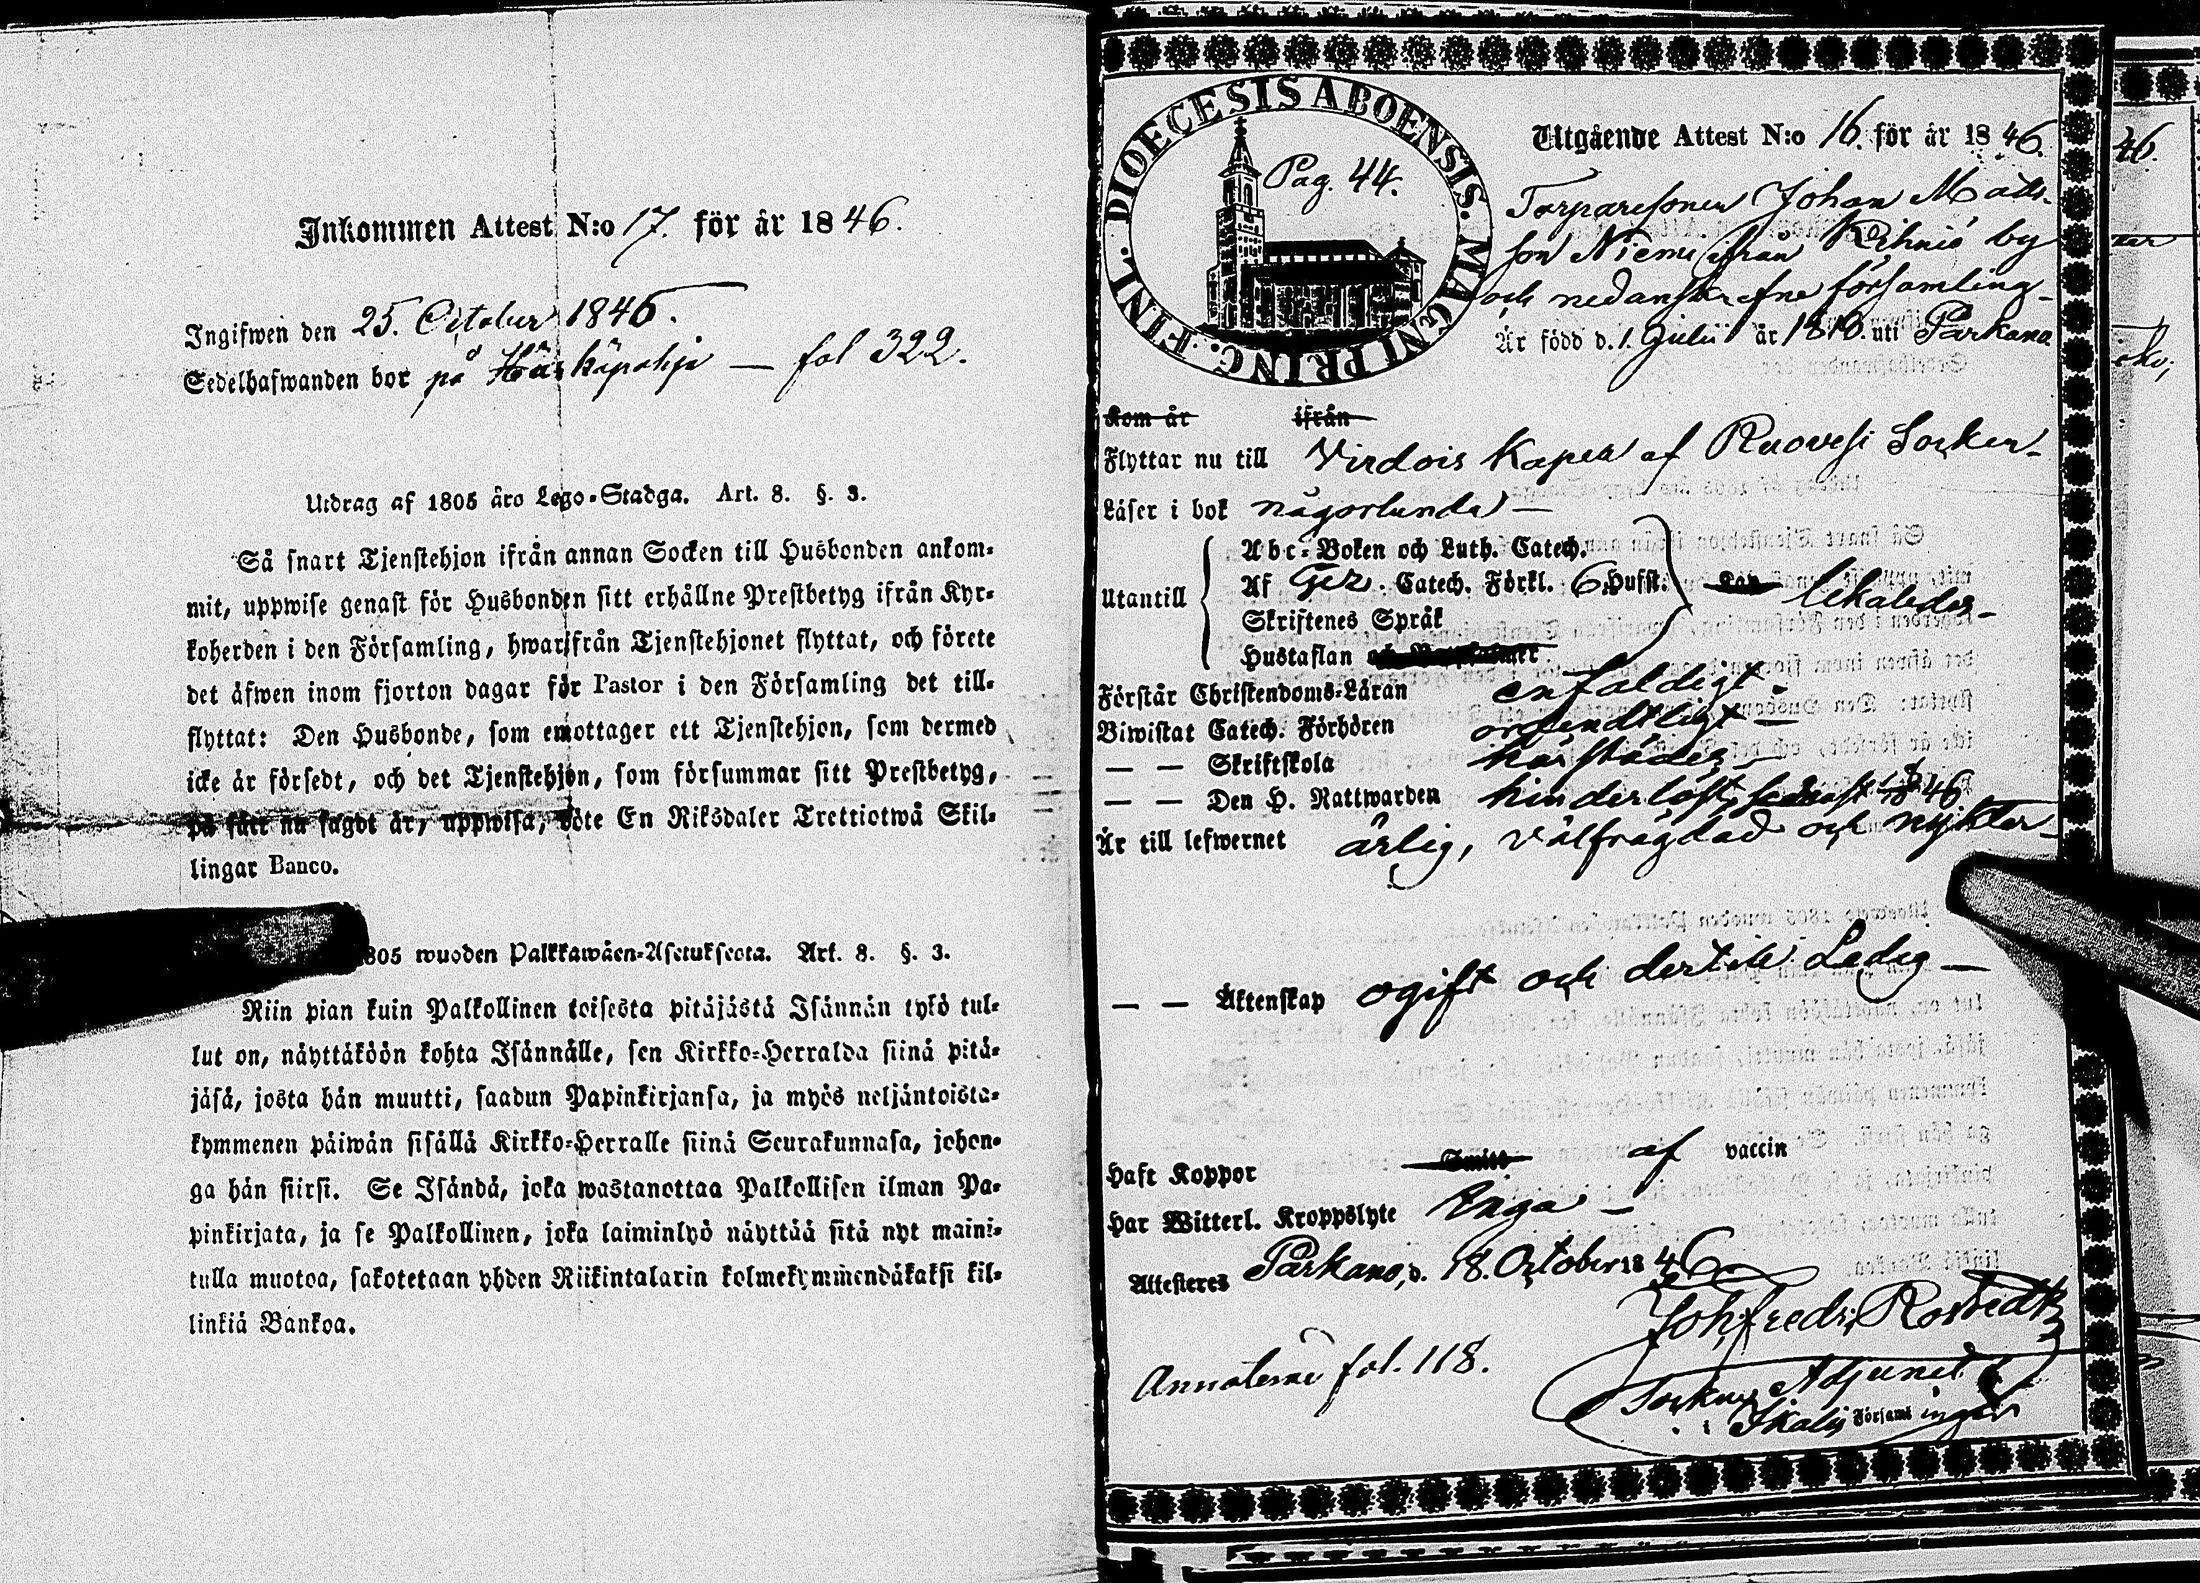 Inkommen Attest N:o 17. för år 1846.
Ingifwen den 25. October 1846.
Sedelhafwanden bor på Härkäpohja — fol 322.
Utdrag af 1805 åro Lego-Stadga. Art. 8. §. 3.
Så snart Tjenstehjon ifrån annan Socken till Husbonden ankom-
mit, uppwise genast för Husbonden sitt erhållne Prestbetyg ifrån Kyr-
koherden i den Församling, hwarifrån Tjenstehjonet flyttat, och förete
det äfwen inom fjorton dagar för Pastor i den Församling det till-
flyttat: Den Husbonde, som emottager ett Tjenstehjon, som dermed
icke är försedt, och det Tjenstehjon, som försummar sitt Prestbetyg,
på sätt nu sagdt är, uppwisa, böte En Riksdaler Trettiotwå Skil-
lingar Banco.
805 wuoden Palkkawäen-Asetuksesta. Art. 8. §. 3.
Niin pian kuin Palkollinen toisesta pitäjästä Isännän tykö tul-
lut on, näyttäköön kohta Isännälle, sen Kirkko-Herralda siinä pitä-
jäsä, josta hän muutti, saadun Papinkirjansa, ja myös neljäntoista-
kymmenen päiwän sisällä Kirkko-Herralle siinä Seurakunnasa, johon-
ga hän siirsi. Se Isändä, joka wastanottaa Palkollisen ilman Pa-
pinkirjata, ja se Palkollinen, joka laiminlyö näyttää sitä nyt maini-
tulla muotoa, sakotetaan yhden Riikintalarin kolmekymmendäkaksi kil-
linkiä Bankoa.
DIOECESIS ABOENSIS. MAGNI PRINC. FINL.
Pag. 44.
Utgående Attest N:o 16. för år 1846.
Torparesonen Johan Matts-
son Niemi ifrån Kihniö by
och nedanskrefne församling-
Är född d. 1. Julii år 1810. uti Parkano
Kom år ifrån
Flyttar nu till Virdois Kapell af Ruovesi Socken-
Läser i bok någorlunda —
Utantill
Abc-Boken och Luth. Catech.
Af Gez. Catech. Förkl. 6 Hufst.
Skriftenes Språk
Hustaflan
likaledes-
Förstår Christendoms-Läran enfaldigt-
Biwistat Catech. Förhören ordendtligt —
— — Skriftskola härstädes —
— — Den H. Nattwarden hinderlöst, sednast 46
Är till lefwernet ärlig, välfrägdad och nykter-
— — Äktenskap ogift och dertill Ledig —
Haft Koppor Smitt af vaccin
Har Witterl. Kroppslyte Inga —
Attesteras Parkano, d. 18. October 1846
Joh. Fredr. Rostedt
Annoterat fol. 118.
Sockne Adjunct
i Ikalis Församlingar
46.